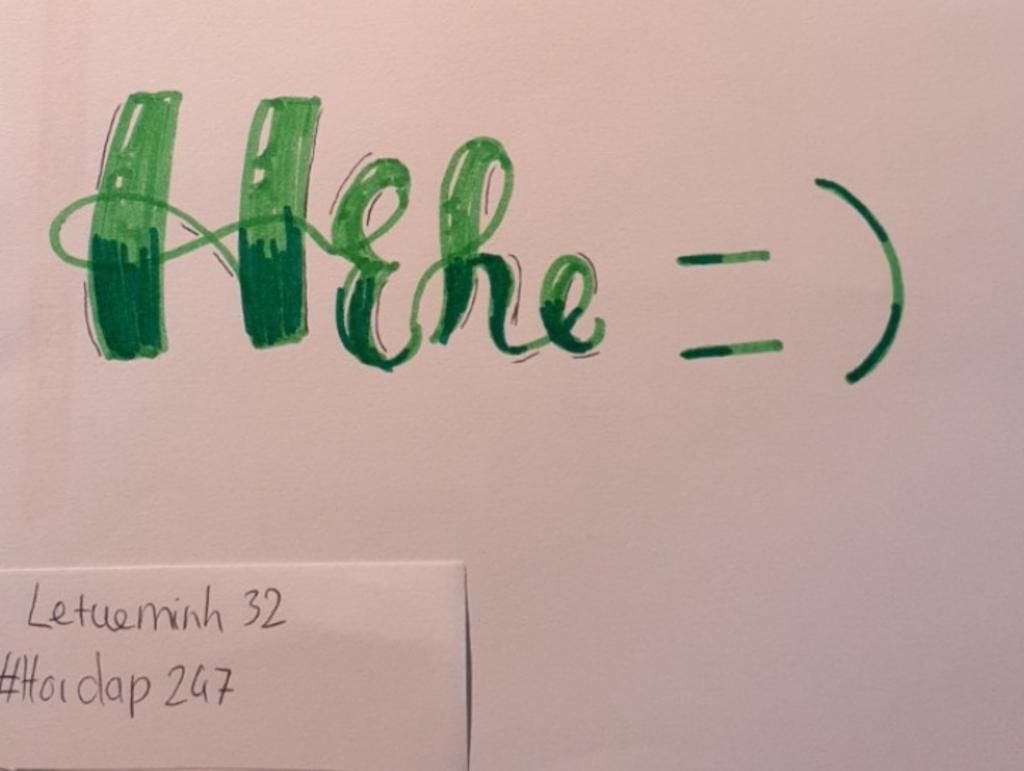 Hehe =)
Letueminh 32
#Hoidap 247